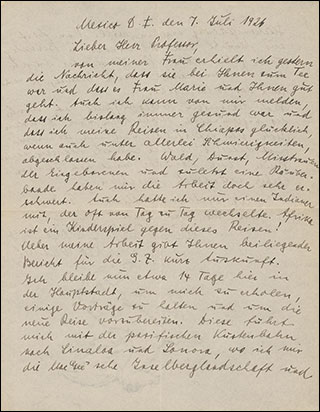 Mexico D. F. den 7. Juli 1926
Lieber Herr Professor,
von meiner Frau erhielt ich gestern
die Nachricht, dass sie bei Ihnen zum Tee
war und dass es Frau Marie und Ihnen gut
geht. Auch ich kann von mir melden,
dass ich bislang immer gesund war und
dass ich meine Reisen in Chiapas glücklich,
wenn auch unter allerlei Schwierigkeiten,
abgeschlossen habe. Wald, Durst, Misstrauen
der Eingeborenen und zuletzt eine Räuber-
bande haben mir die Arbeit doch sehr er-
schwert. Auch hatte ich nur einen Indianer
mit, der oft von Tag zu Tag wechselte. Afrika
ist ein Kinderspiel gegen dieses Reisen!
Ueber meine Arbeit gibt Ihnen beiliegender
Bericht für die G. Z. kurz Auskunft.
Ich bleibe nun etwa 14 Tage hier in
der Hauptstadt, um mich zu erholen,
einige Vorträge zu halten und um die
neue Reise vorzubereiten. Diese führt
mich mit der pazifischen Küstenbahn
nach Sinaloa und Sonora, wo ich mir
die sche Inselberglandschaft und